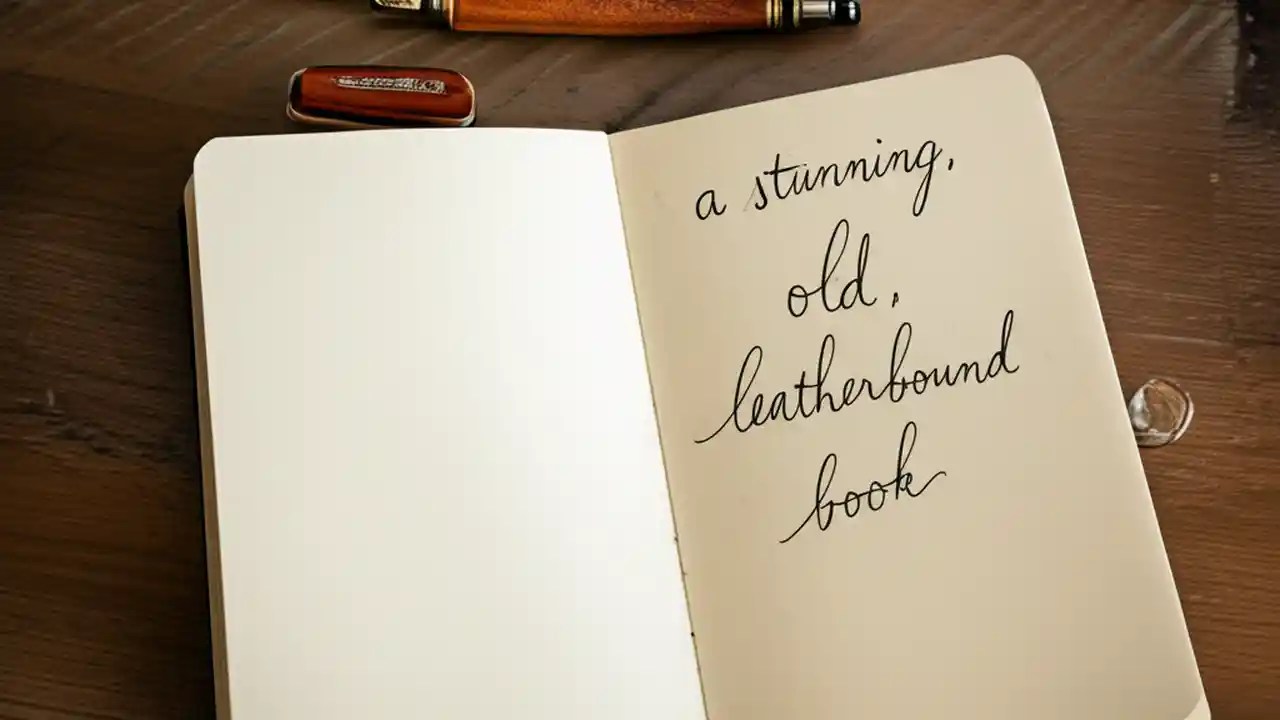 a stunning,
old,
leatherbound
book